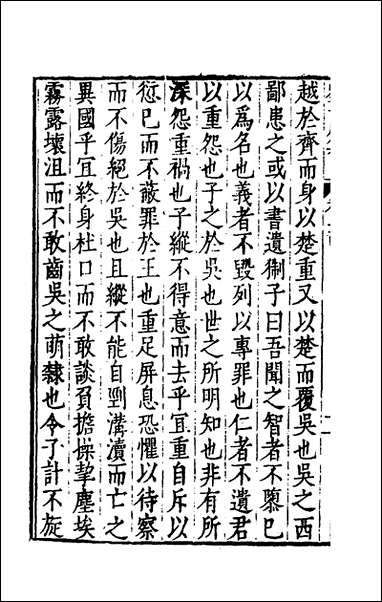 越於齊而身以楚重又以楚而覆吳也吳之西
鄙患之或以書遺御子曰吾聞之智者不隳已
以爲名也義者不毀列以專罪也仁者不遺君
以重怨也子之於吳也世之所明知也非有所
深怨重禍也子縱不得意而去乎冝重自斥以
愆已而不蔽罪於王也重足屏息恐懼以待察
而不傷絕於吳也且縱不能自剄溝瀆而亡之
異國乎冝終身杜口而不敢談負擔操挈塵埃
霧露壞沮而不敢齒吳之萌隸也今了計不旋